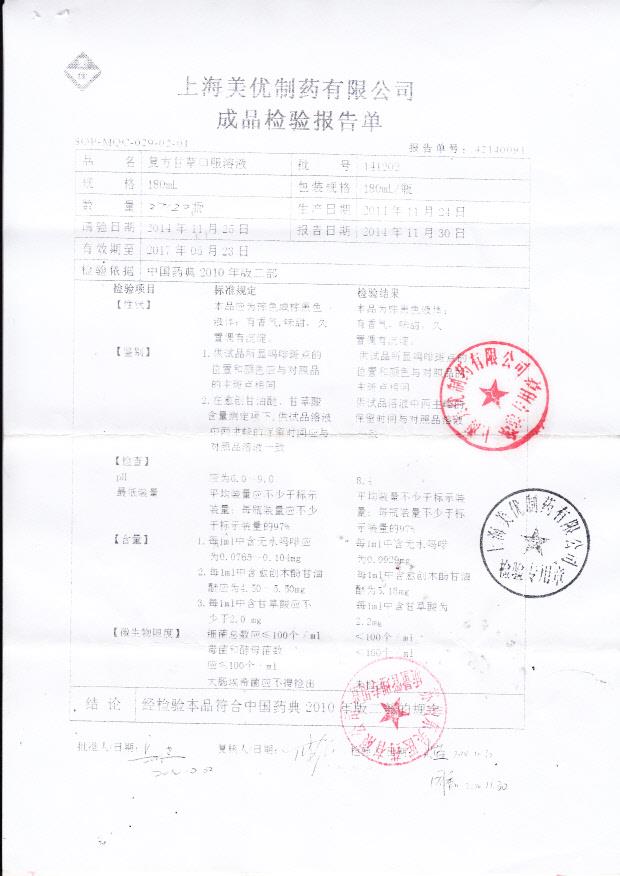 上海美优制药有限公司
成品检验报告单
SOP-MQC-029-02-01 报告单号：
品名 复方甘草口服溶液 批号 141202
规格 180mL 包装规格 180mL/瓶
数量 生产日期 2014年11月24日
请验日期 2014年11月25日 报告日期 2014年11月30日
有效期至 2017年05月23日
检验依据 中国药典2010年版二部
检验项目 标准规定 检验结果
【性状】 本品应为棕色或棕黑色 本品为棕黑色液体；
液体；有香气，味甜，久 有香气，味甜，久
置偶有沉淀。 置偶有沉淀。
【鉴别】 1.供试品所显吗啡斑点的 供试品所显吗啡斑点的
位置和颜色应与对照品 位置和颜色与对照品
的主斑点相同 的主斑点相同
2.在愈创甘油醚、甘草酸 供试品溶液中两主峰的
含量测定项下，供试品溶液 保留时间与对照品溶液
中两主峰的保留时间应与 一致
对照品溶液一致
【检查】
pH 应为6.0～9.0 8.4
最低装量 平均装量应不少于标示 平均装量不少于标示装
装量；每瓶装量应不少 量；每瓶装量不少于标
于标示装量的97% 示装量的97%
【含量】 1.每1ml中含无水吗啡应 每1ml中含无水吗啡
为0.0765～0.104mg 为0.0929mg
2.每1ml中含愈创木酚甘油 每1ml中含愈创木酚甘油
醚应为4.50～5.50mg 醚为5.18mg
3.每1ml中含甘草酸应不 每1ml中含甘草酸为
少于2.0mg 2.2mg
【微生物限度】 细菌总数应≤100个/ml ≤100个/ml
霉菌和酵母菌数 ≤100个/ml
应≤100个/ml
大肠埃希菌应不得检出
结论 经检验本品符合中国药典2010年版二部的规定
批准人/日期： 复核人/日期：
上海美优制药有限公司
检验专用章